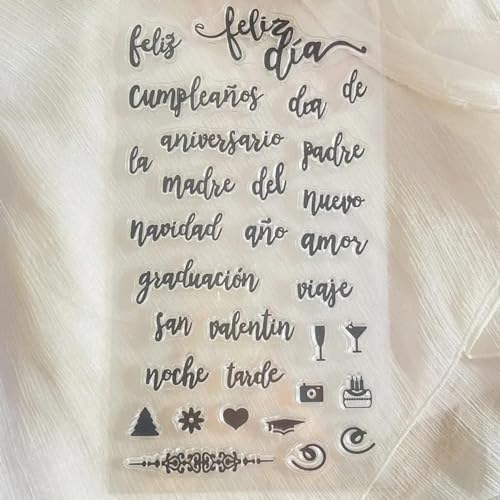 feliz feliz día
cumpleaños dia de
la aniversario padre
madre del nuevo
navidad año amor
graduación viaje
san valentin
noche tarde